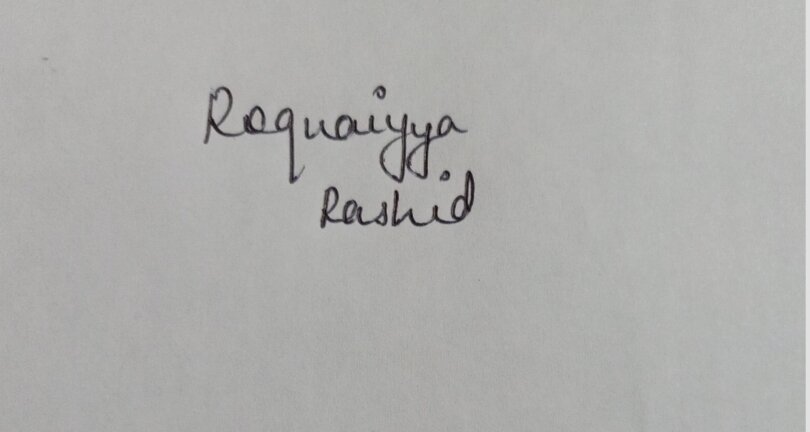 Roquaiyya
Rashid